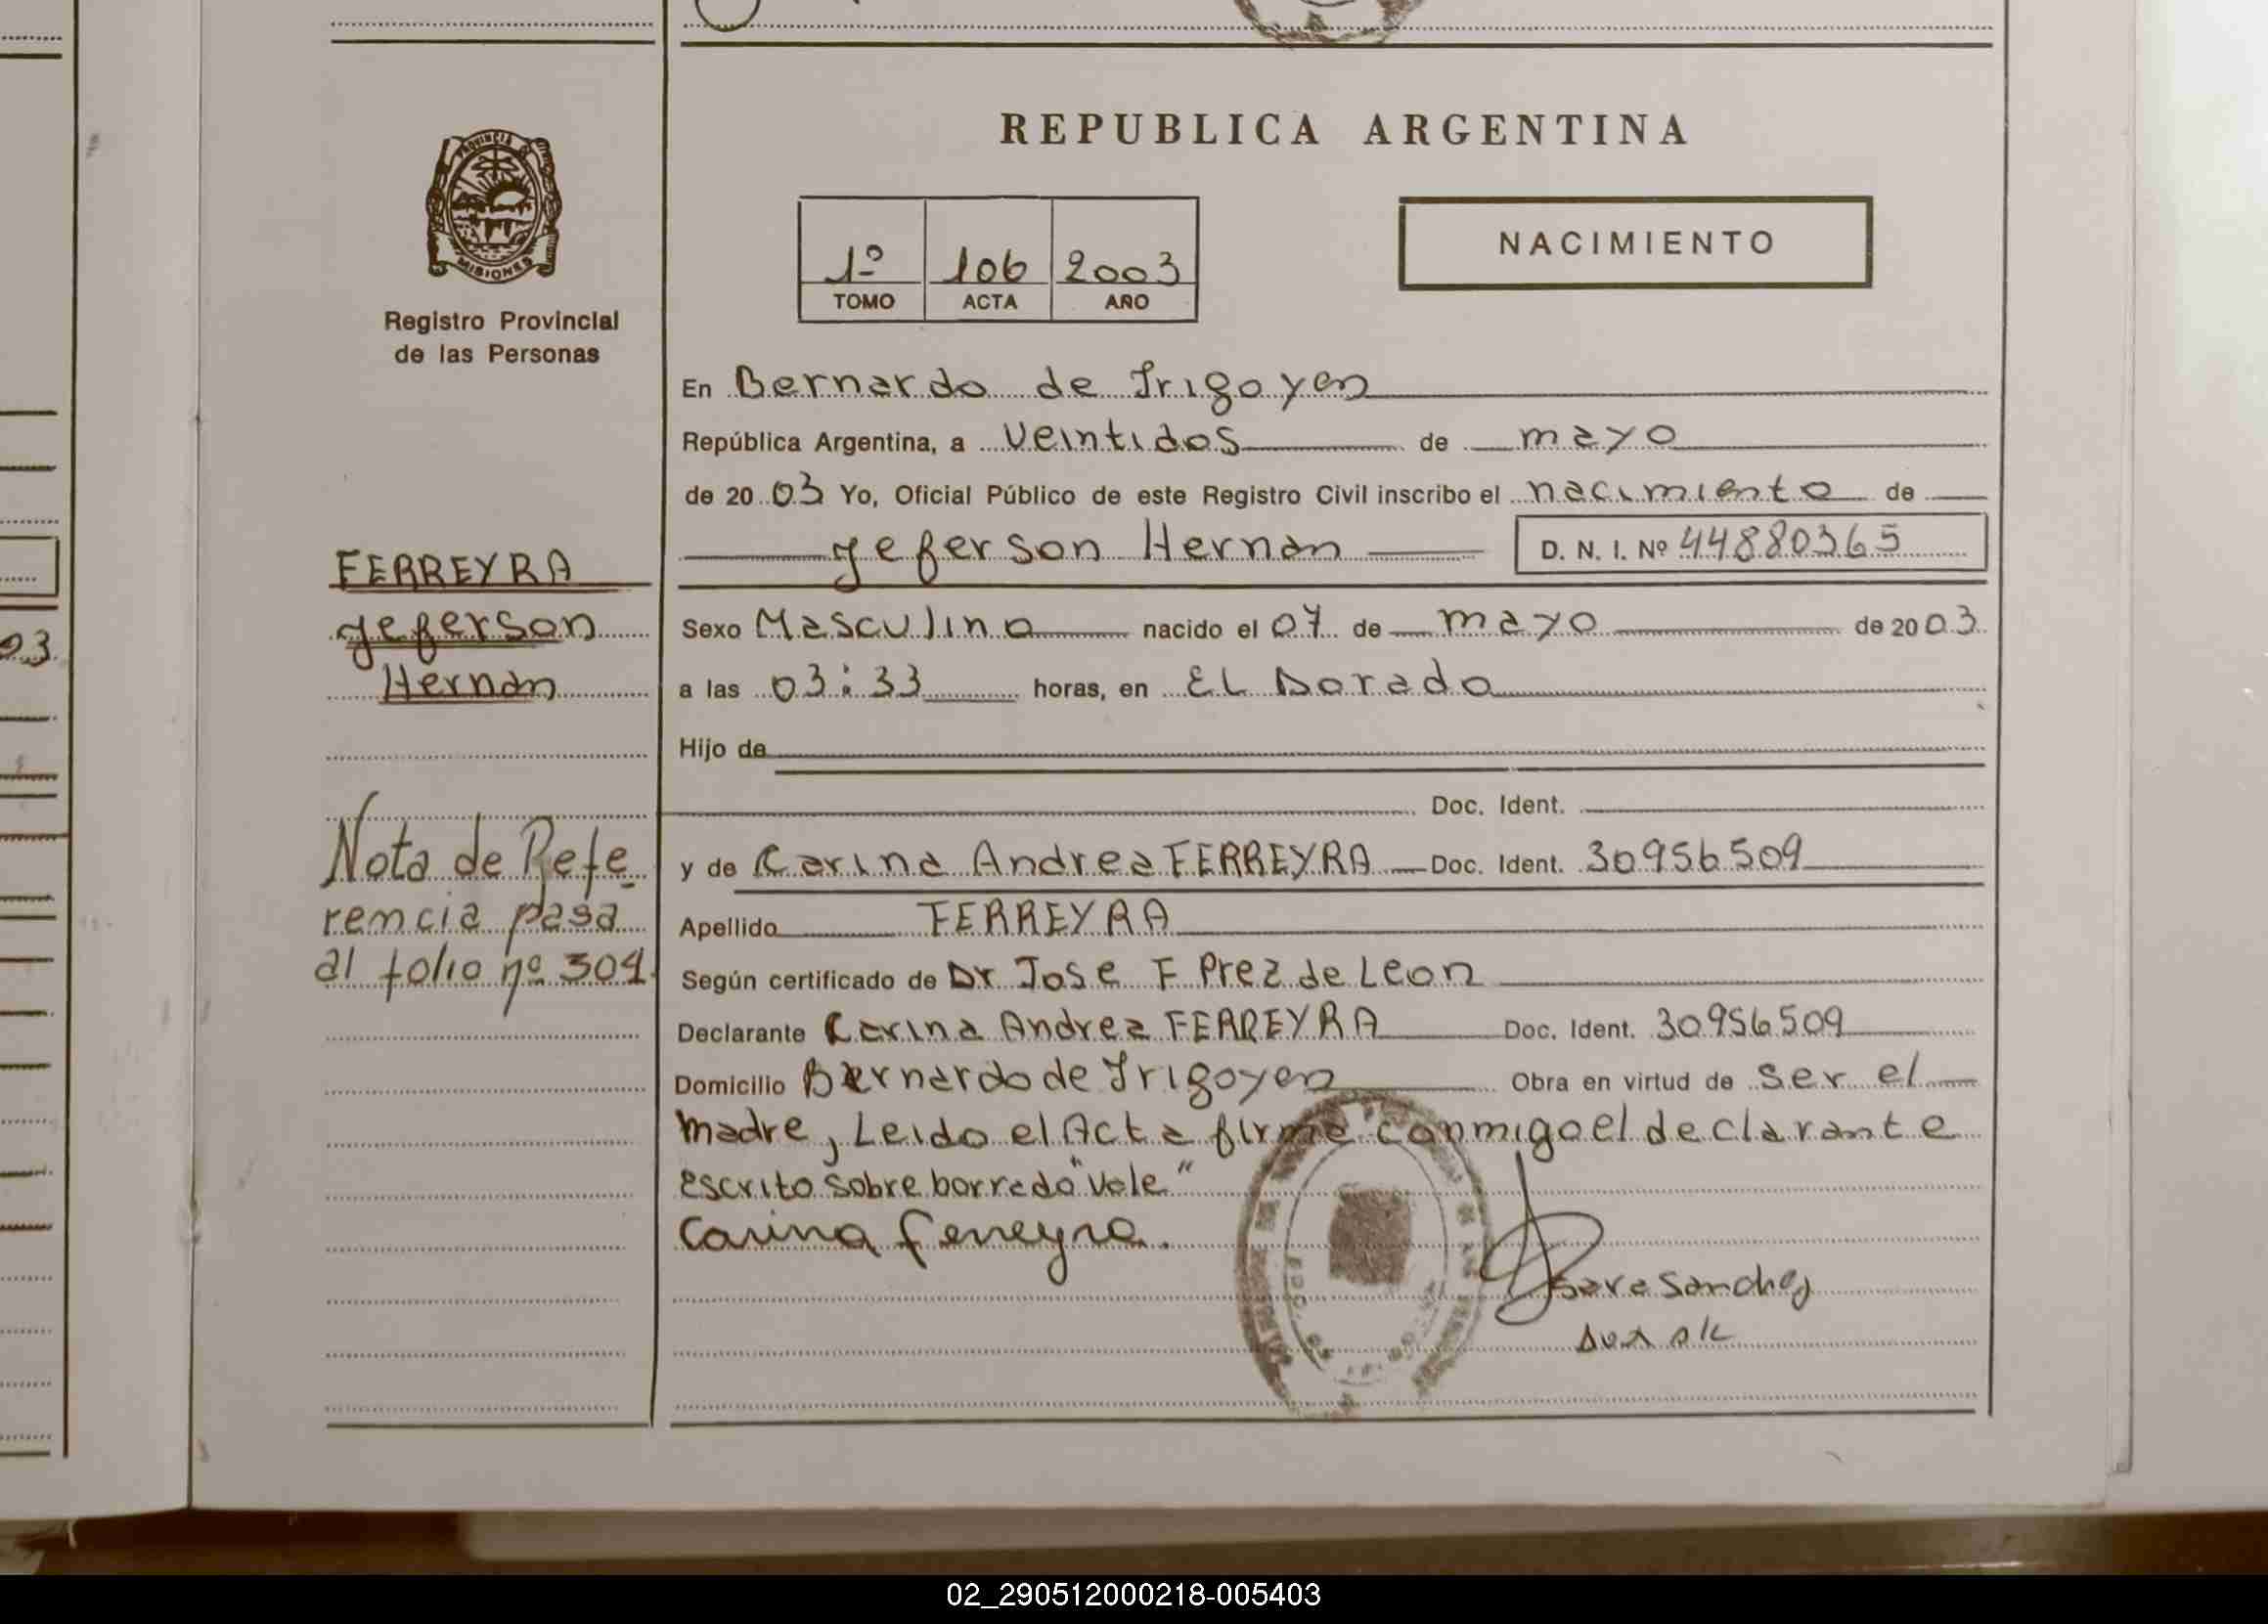 PROVINCIA DE
MISIONES
Registro Provincial
de las Personas
REPUBLICA ARGENTINA
1º 106 2003
TOMO ACTA AÑO
NACIMIENTO
En Bernardo de Irigoyen
República Argentina, a veintidos de mayo
de 2003 Yo, Oficial Público de este Registro Civil inscribo el nacimiento de
Jeferson Hernan D. N. I. Nº 44880365
Sexo Masculino nacido el 07 de mayo de 2003
a las 03:33 horas, en EL Dorado
Hijo de
Doc. Ident.
y de Carina Andrea FERREYRA Doc. Ident. 30956509
Apellido FERREYRA
Según certificado de Dr Jose F Prez de Leon
Declarante Carina Andrea FERREYRA Doc. Ident. 30956509
Domicilio Bernardo de Irigoyen Obra en virtud de ser el
madre, Leido el Acta firma conmigo el declarante
escrito sobre borrado "Vale"
Carina Ferreyra.
Sara Sanchez
FERREYRA
Jeferson
Hernan
Nota de Refe
rencia pasa
al folio nº 304
03
02_290512000218-005403